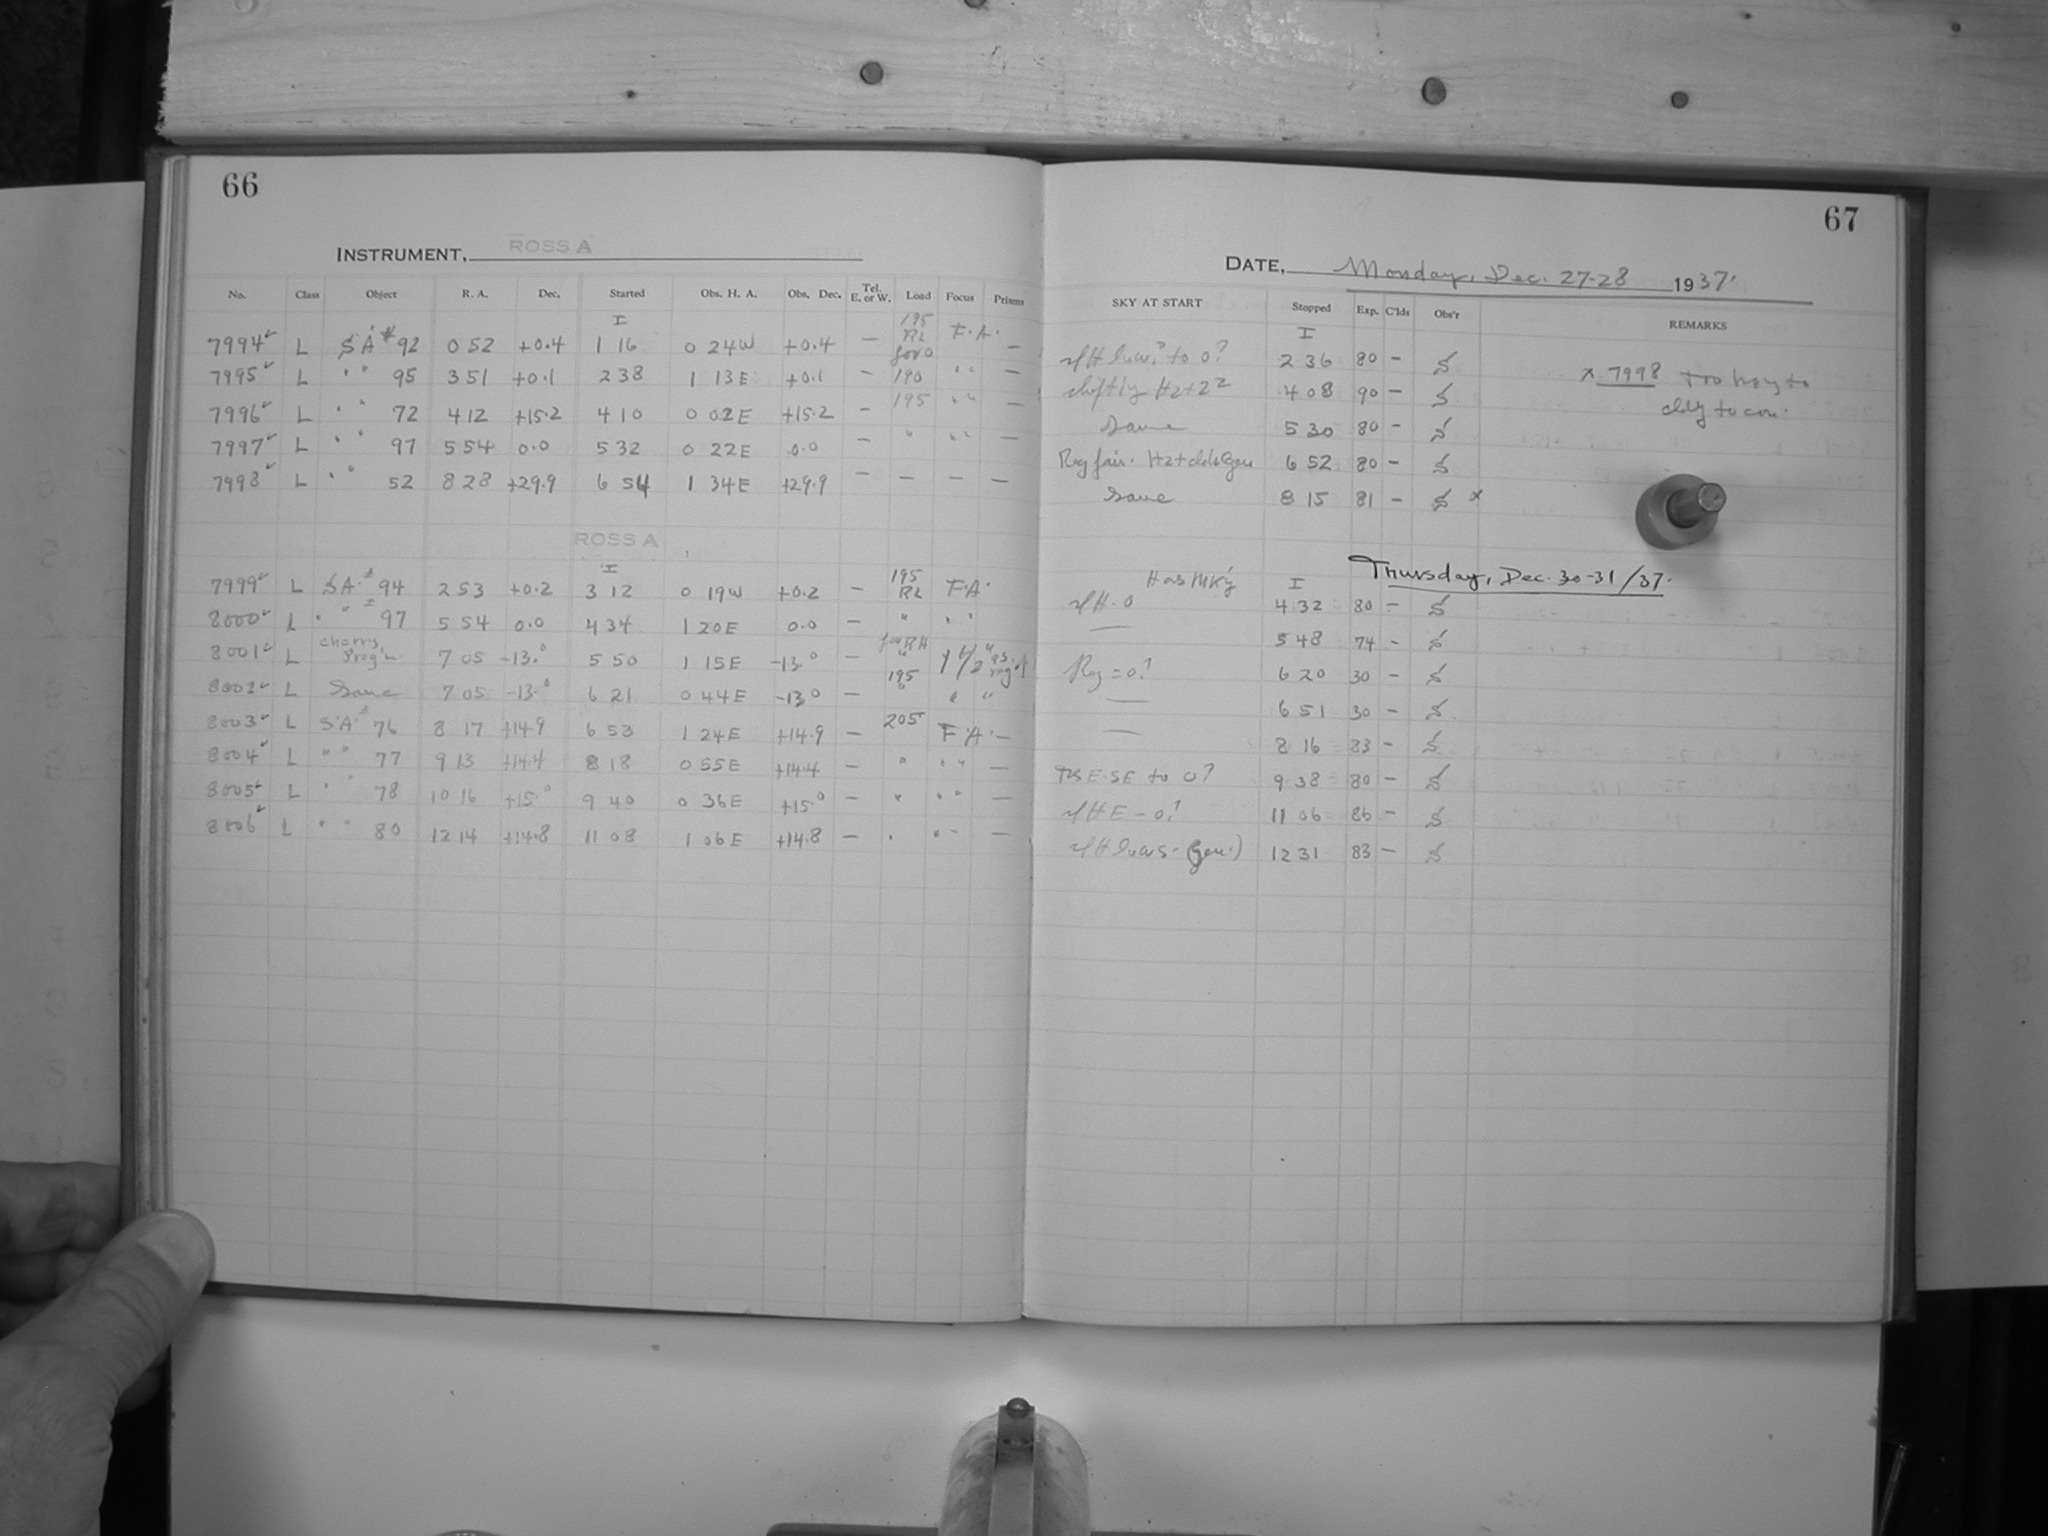 66
INSTRUMENT, ROSS A
No. Class Object R. A. Dec. Started Obs. H. A. Obs. Dec. Tel. E. or W. Load Focus Prisms
I
7994 L SA # 92 0 52 +0.4 1 16 0 24W +0.4 — 195 RL F.A. —
7995 L " " 95 3 51 +0.1 2 38 1 13E +0.1 — 190 " " —
7996 L " " 72 4 12 +15.2 4 10 0 02E +15.2 — 195 " " —
7997 L " " 97 5 54 0.0 5 32 0 22E 0.0 — " " " —
7998 L " " 52 8 28 +29.9 6 54 1 34E +29.9 — — — —
ROSS A
I
7999 L SA. # 94 2 53 +0.2 3 12 0 19W +0.2 — 195 RL F.A.
8000 L " " 97 5 54 0.0 4 34 1 20E 0.0 — " " "
8001 L Cherry Prog'm 7 05 -13.0 5 50 1 15E -13.0 —
8002 L Same 7 05 -13.0 6 21 0 44E -13.0 — 195 " " "
8003 L S.A. # 76 8 17 +14.9 6 53 1 24E +14.9 — 205 F.A. —
8004 L " " 77 9 13 +14.4 8 18 0 55E +14.4 — " " " —
8005 L " " 78 10 16 +15.0 9 40 0 36E +15.0 — " " " —
8006 L " " 80 12 14 +14.8 11 08 1 06E +14.8 — " " " —
67
DATE, Monday, Dec. 27-28 1937.
SKY AT START Stopped Exp. C'lds Obs'r REMARKS
I
to 0? 2 36 80 — S
Hz + 4 08 90 — S
Same 5 30 80 — S
Reg fair. Hz + 6 52 80 — S
Same 8 15 81 — S x
x 7998 Too hazy to
cldy to con.
Thursday, Dec. 30-31/37.
I
4 32 80 — S
— 5 48 74 — S
Reg = 0? 6 20 30 — S
— 6 51 30 — S
— 8 16 83 — S
E-SE to 0? 9 38 80 — S
E - 0? 11 06 86 — S
(gen.) 12 31 83 — S